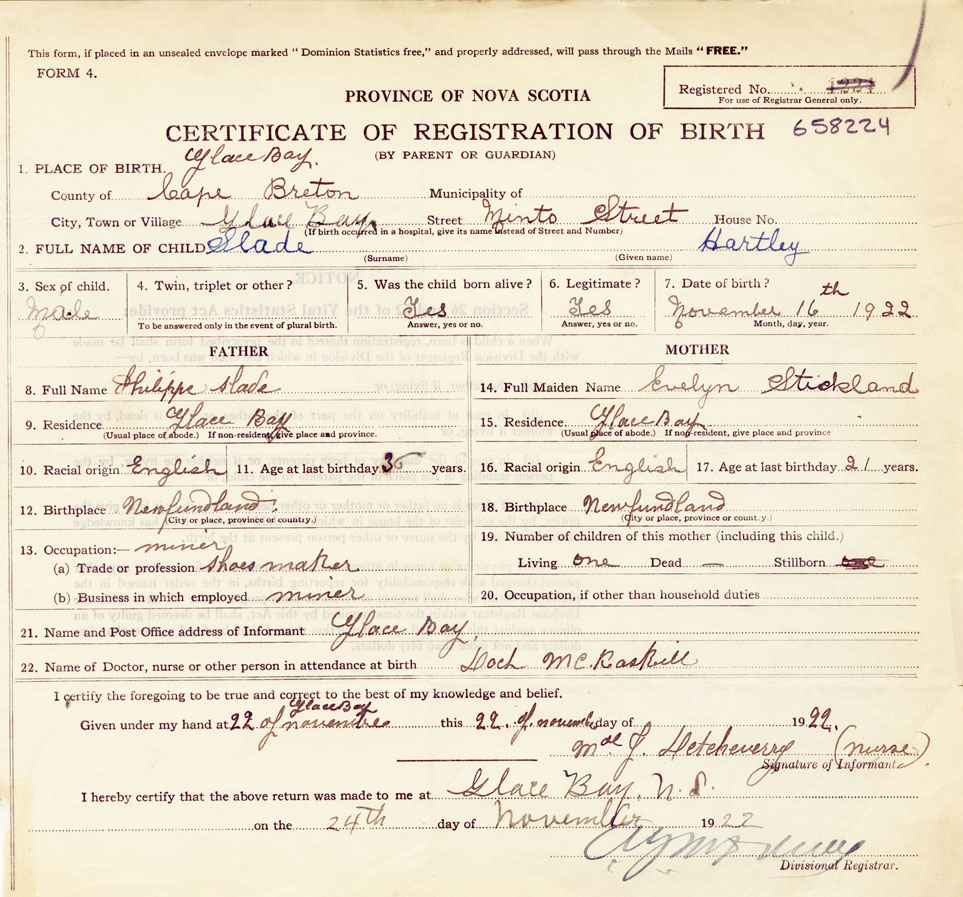 This form, if placed in an unsealed envelope marked "Dominion Statistics free," and properly addressed, will pass through the Mails "FREE."
FORM 4.
Registered No. 1224
For use of Registrar General only.
PROVINCE OF NOVA SCOTIA
CERTIFICATE OF REGISTRATION OF BIRTH 658224
(BY PARENT OR GUARDIAN)
1. PLACE OF BIRTH. Glace Bay.
County of Cape Breton Municipality of
City, Town or Village Glace Bay, Street Minto Street House No.
(If birth occurred in a hospital, give its name instead of Street and Number)
2. FULL NAME OF CHILD Slade Hartley
(Surname) (Given name)
3. Sex of child. 4. Twin, triplet or other? 5. Was the child born alive? 6. Legitimate? 7. Date of birth?
Male Yes Yes November 16th 1922
To be answered only in the event of plural birth. Answer, yes or no. Answer, yes or no. Month, day, year.
FATHER MOTHER
8. Full Name Philippe Slade 14. Full Maiden Name Evelyn Stickland
9. Residence Glace Bay 15. Residence Glace Bay
(Usual place of abode.) If non-resident, give place and province. (Usual place of abode.) If non-resident, give place and province
10. Racial origin English 11. Age at last birthday years. 16. Racial origin English 17. Age at last birthday 21 years.
12. Birthplace Newfundland. 18. Birthplace Newfundland
(City or place, province or country.) (City or place, province or country.)
13. Occupation:— miner 19. Number of children of this mother (including this child.)
(a) Trade or profession shoes maker Living one Dead — Stillborn one
(b) Business in which employed miner 20. Occupation, if other than household duties
21. Name and Post Office address of Informant Glace Bay,
22. Name of Doctor, nurse or other person in attendance at birth Doch McKaskill
I certify the foregoing to be true and correct to the best of my knowledge and belief.
Glace Bay
Given under my hand at 22 of novembre this 22. of novemb day of 1922.
J. Detcheverry (nurse)
Signature of Informant
I hereby certify that the above return was made to me at Glace Bay, N.S.
on the 24th day of November 1922
Divisional Registrar.